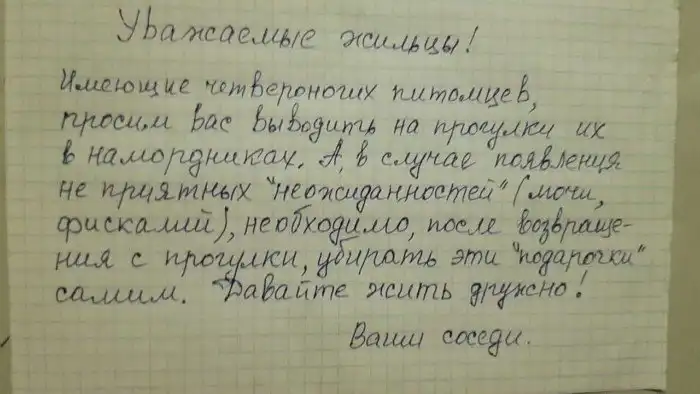 Уважаемые жильцы!
Имеющие четвероногих питомцев,
просим вас выводить на прогулки их
в намордниках. А, в случае появления
не приятных "неожиданностей" (мочи,
фискалий), необходимо, после возвраще-
ния с прогулки, убирать эти "подарочки"
самим. Давайте жить дружно!
Ваши соседи.